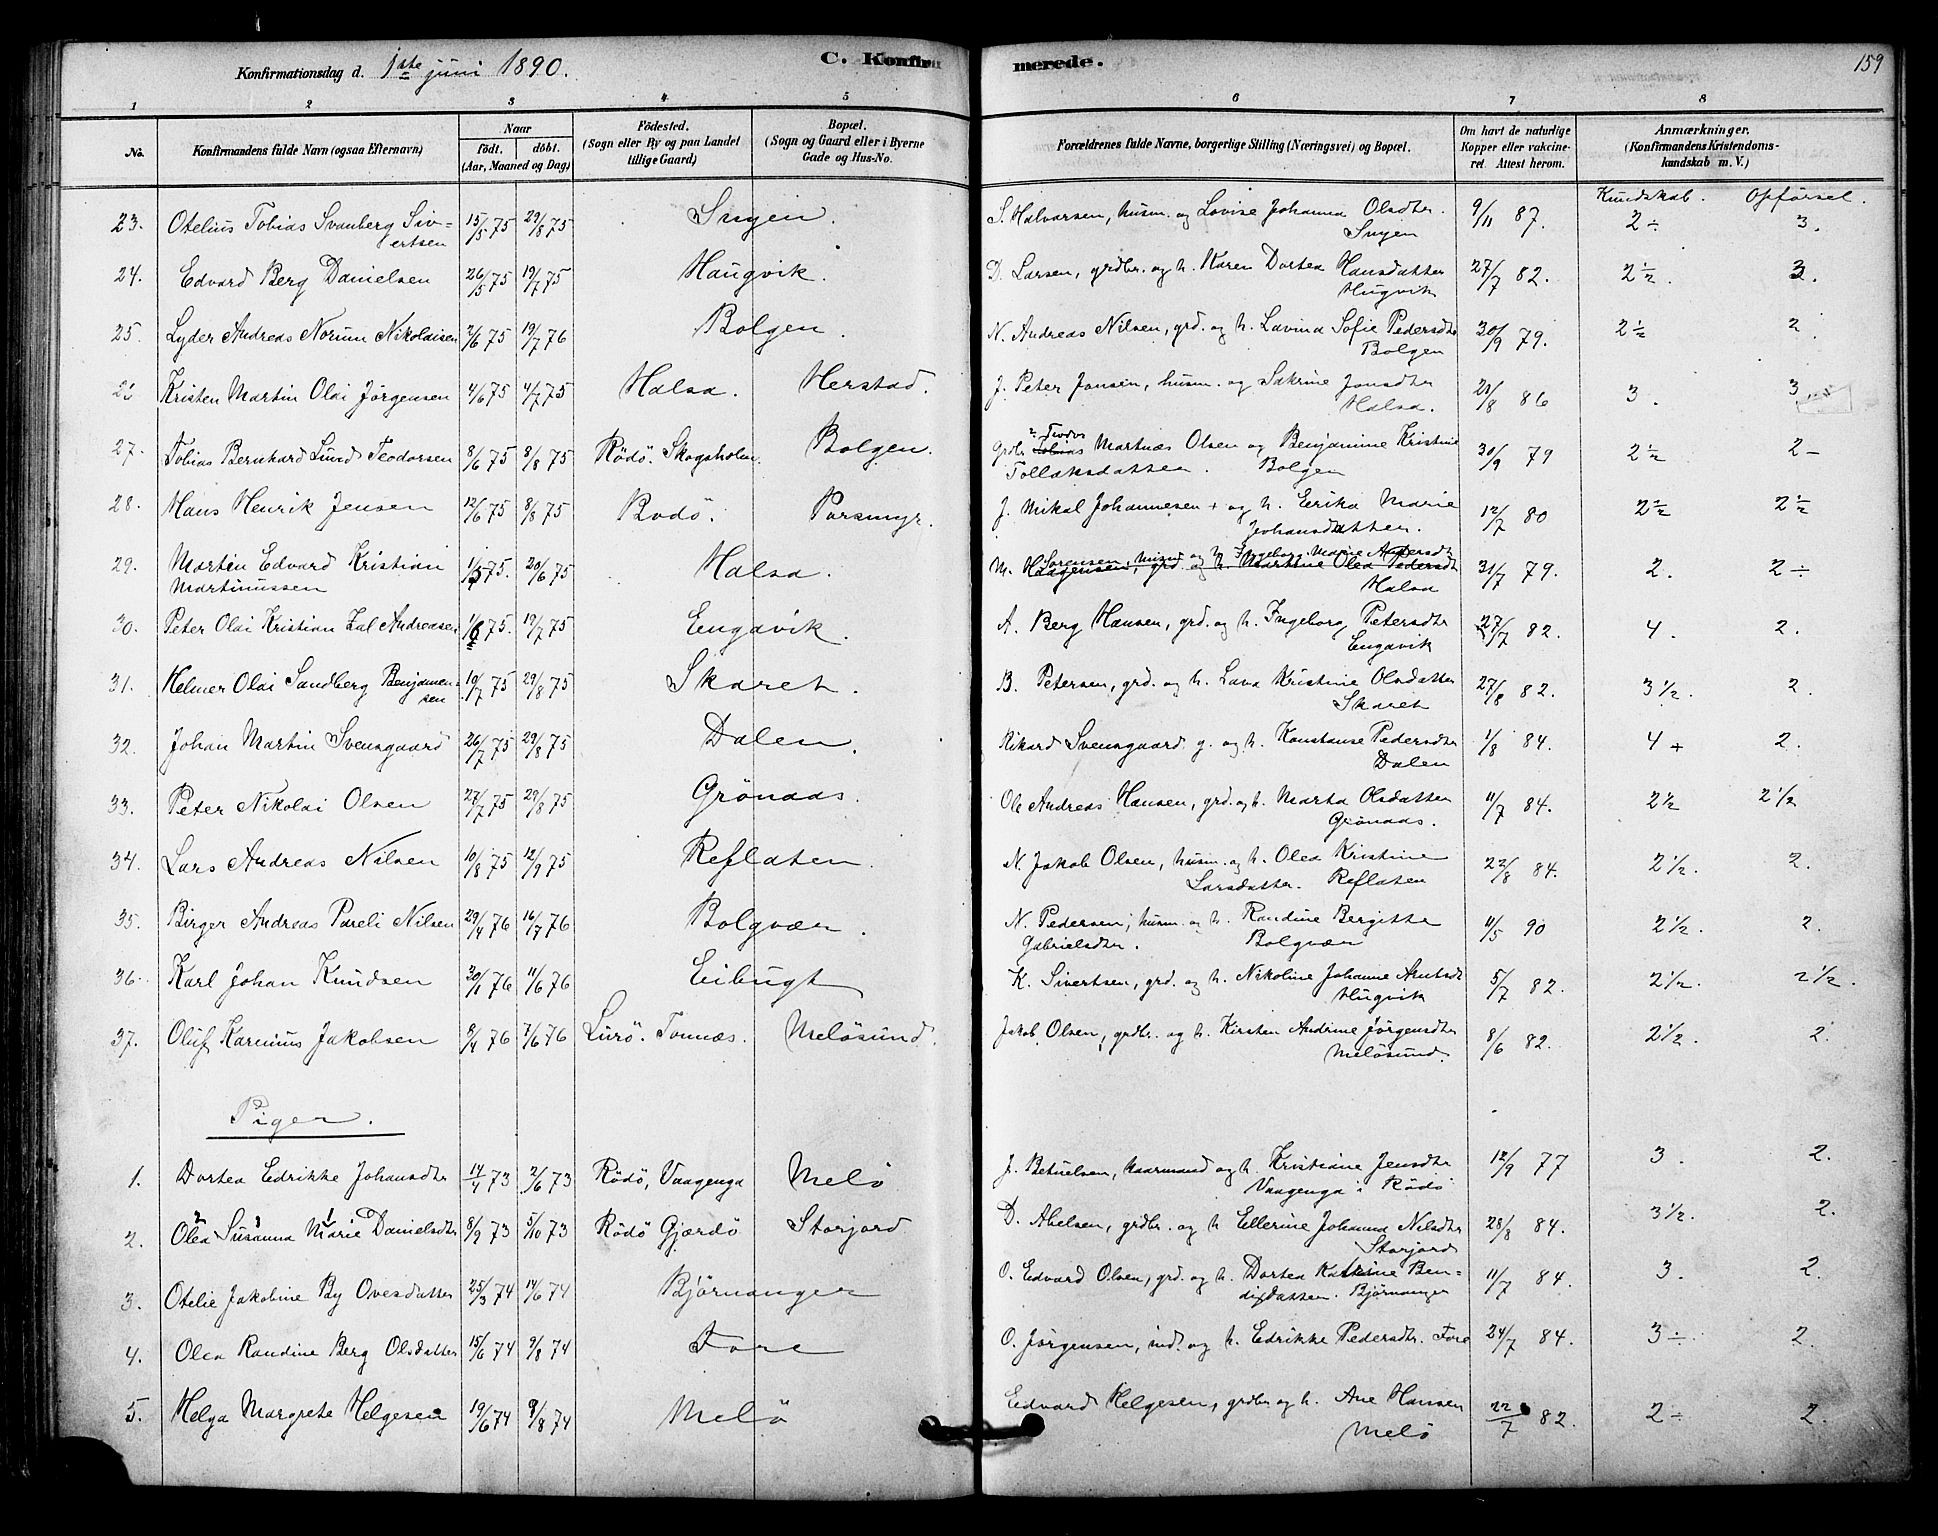 Konfirmationsdag d. 1ste juni 1890. C. Konfirmerede. 159
1 2 3 4 5 6 7 8
No. Konfirmandens fulde Navn (ogsaa Efternavn) Naar födt. döbt. (Aar, Maaned og Dag) Födested. (Sogn eller By og paa Landet tillige Gaard) Bopæl. (Sogn og Gaard eller i Byerne Gade og Hus-No. Forældrenes fulde Navne, borgerlige Stilling (Næringsvei) og Bopæl. Om havt de naturlige Kopper eller vakcineret. Attest herom. Anmærkninger. (Konfirmandens Kristendomskundskab m. V.)
Kundskab. Opförsel.
23. Otelius Tobias Svanberg Sivertsen 15/5 75 29/8 75 S. Halvorsen, husm. og Lovise Johanna Olsdtr. 9/11 87. 2÷ 3.
24. Edvard Berg Danielsen 26/5 75 19/7 75 Haugvik. D. Larsen, grdbr. og h. Karen Dortea Hansdatter Hugvik 27/7 82. 2½. 3.
25. Lyder Andreas Norum Nikolaisen 2/6 75 19/7 76 Bolgen. N. Andreas Nilsen, grd. og h. Lavina Sofie Pedersdtr Bolgen 30/9 79. 2½ 2.
Kristen Martin Olai Jörgensen 4/6 75 4/7 75 Halsa. Herstad. J. Peter Jonsen, husm. og Sakrine Jonsdtr Halsa. 86 3. 3
27. Tobias Bernhard Lund Teodorsen 8/6 75 8/8 75 Rödö. Skogsholm. Bolgen. Grdbr Teodor Martnæs Olsen og Benjamine Kristine Tollaksdatter. Bolgen 30/9 79 2½ 2-
28. Hans Henrik Jensen 12/6 75 8/8 75 Bodö. Porsmyr. J. Mikal Johannesen + og h. Erika Marie Johansdatter. 12/7 80 2½ 2½
29. Martin Edvard Kristian Martinussen 1/5 75. 20/6 75 Halsa. M. Sörensen, husm og h Ingeborg Marie Andersdt Halsa 31/7 79. 2. 2÷
30. Peter Olai Kristian Zal Andreasen 1/6 75. 19/7 75 Engavik. A. Berg Hansen, grd. og h. Ingeborg Petersdtr Engavik 27/7 82. 4. 2.
31. Helmer Olai Sandberg Benjaminsen 10/7 75 29/8 75 Skaret. B. Petersen, grd. og h. Lava Kristine Olsdatter Skaret 27/8 82. 3½. 2.
32. Johan Martin Svensgaard 26/7 75 29/8 75 Dalen. Rikard Svensgaard g. og h. Konstanse Pedersdtr Dalen 1/8 84. 4+ 2.
33. Peter Nikolai Olsen 27/7 75 29/8 75 Grönaas. Ole Andreas Hansen, grd. og h. Marta Olsdatter Grönaas. 11/7 84. 2½ 2½
34. Lars Andreas Nilsen 10/8 75 12/9 75 Reflaten. N. Jakob Olsen, husm. og h. Olea Kristine Larsdatter. Reflaten 22/8 84. 2½. 2.
35. Birger Andreas Pareli Nilsen 29/4 76 16/7 76 Bolgvær. N. Pedersen, husm. og h. Randine Bergitte Gabrielsdtr. Bolgvær 11/5 90 2½. 2.
36. Karl Johan Knudsen 30/1 76 11/6 76 Eibugt K. Sivertsen, grd. og h. Nikoline Johanne Arntsdt Hugvik 5/7 82. 2½. 2½.
37. Oluf Karenius Jakobsen 2/4 76 7/6 76 Lurö. Tonnæs. Melösund. Jakob Olsen, grdbr. og h. Kirsten Andrine Jörgensdtr Melösund. 8/6 82. 2½. 2.
Piger.
1. Dortea Edrikke Johansdtr 14/4 73 2/6 73 Rödö, Vaagenga Melö J. Betuelsen, kaarmand og h. Kristiane Jensdtr Vaagenga i Rödö 12/9 77 3. 2.
2. Olea Susanna Marie Danielsdtr 8/2 73 5/10 73 Rödö Gjærdö Storjord D. Abelsen, grdbr. og h Ellerine Johanna Nilsdtr Storjord 28/8 84. 3½. 2.
3. Otelie Jakobine By Ovesdatter 25/3 74 14/6 74 Björnanger O. Edvard Olsen, grd. og h. Dortea Katrine Bendixdatter. Björnanger 11/7 84. 3. 2.
4. Olea Randine Berg Olsdatter 15/6 74 9/8 74 Fore O. Jörgensen, ind. og h. Edrikke Pedersdtr. Fore 24/7 84. 3÷ 2.
5. Helga Margrete Helgesen 19/6 74 9/8 74 Melö Edvard Helgesen, grdbr og h. Ane Hansen Melö 22/7 82. 2÷ 2.